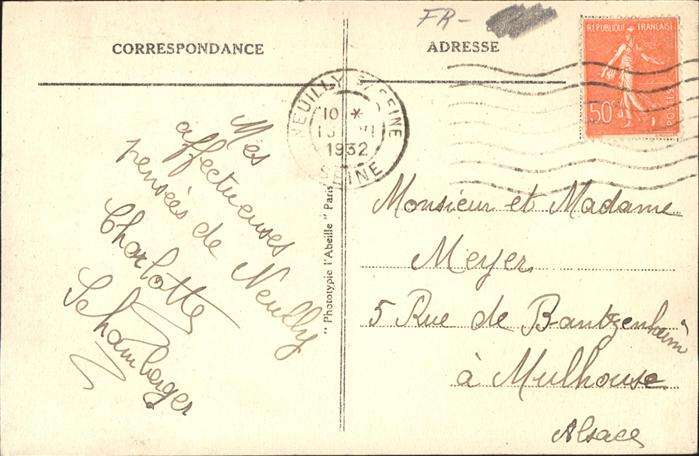 FR-
CORRESPONDANCE
ADRESSE
REPUBLIQUE FRANÇAISE
50c
POSTES
NEUILLY S/SEINE
10 *
1932
SEINE
Mes
affectueuses
pensées de Neuilly
Charlotte
Schamberger
"Phototypie l'Abeille" Paris
Monsieur et Madame
Meyer
5 Rue de Bantzenheim
à Mulhouse
Alsace